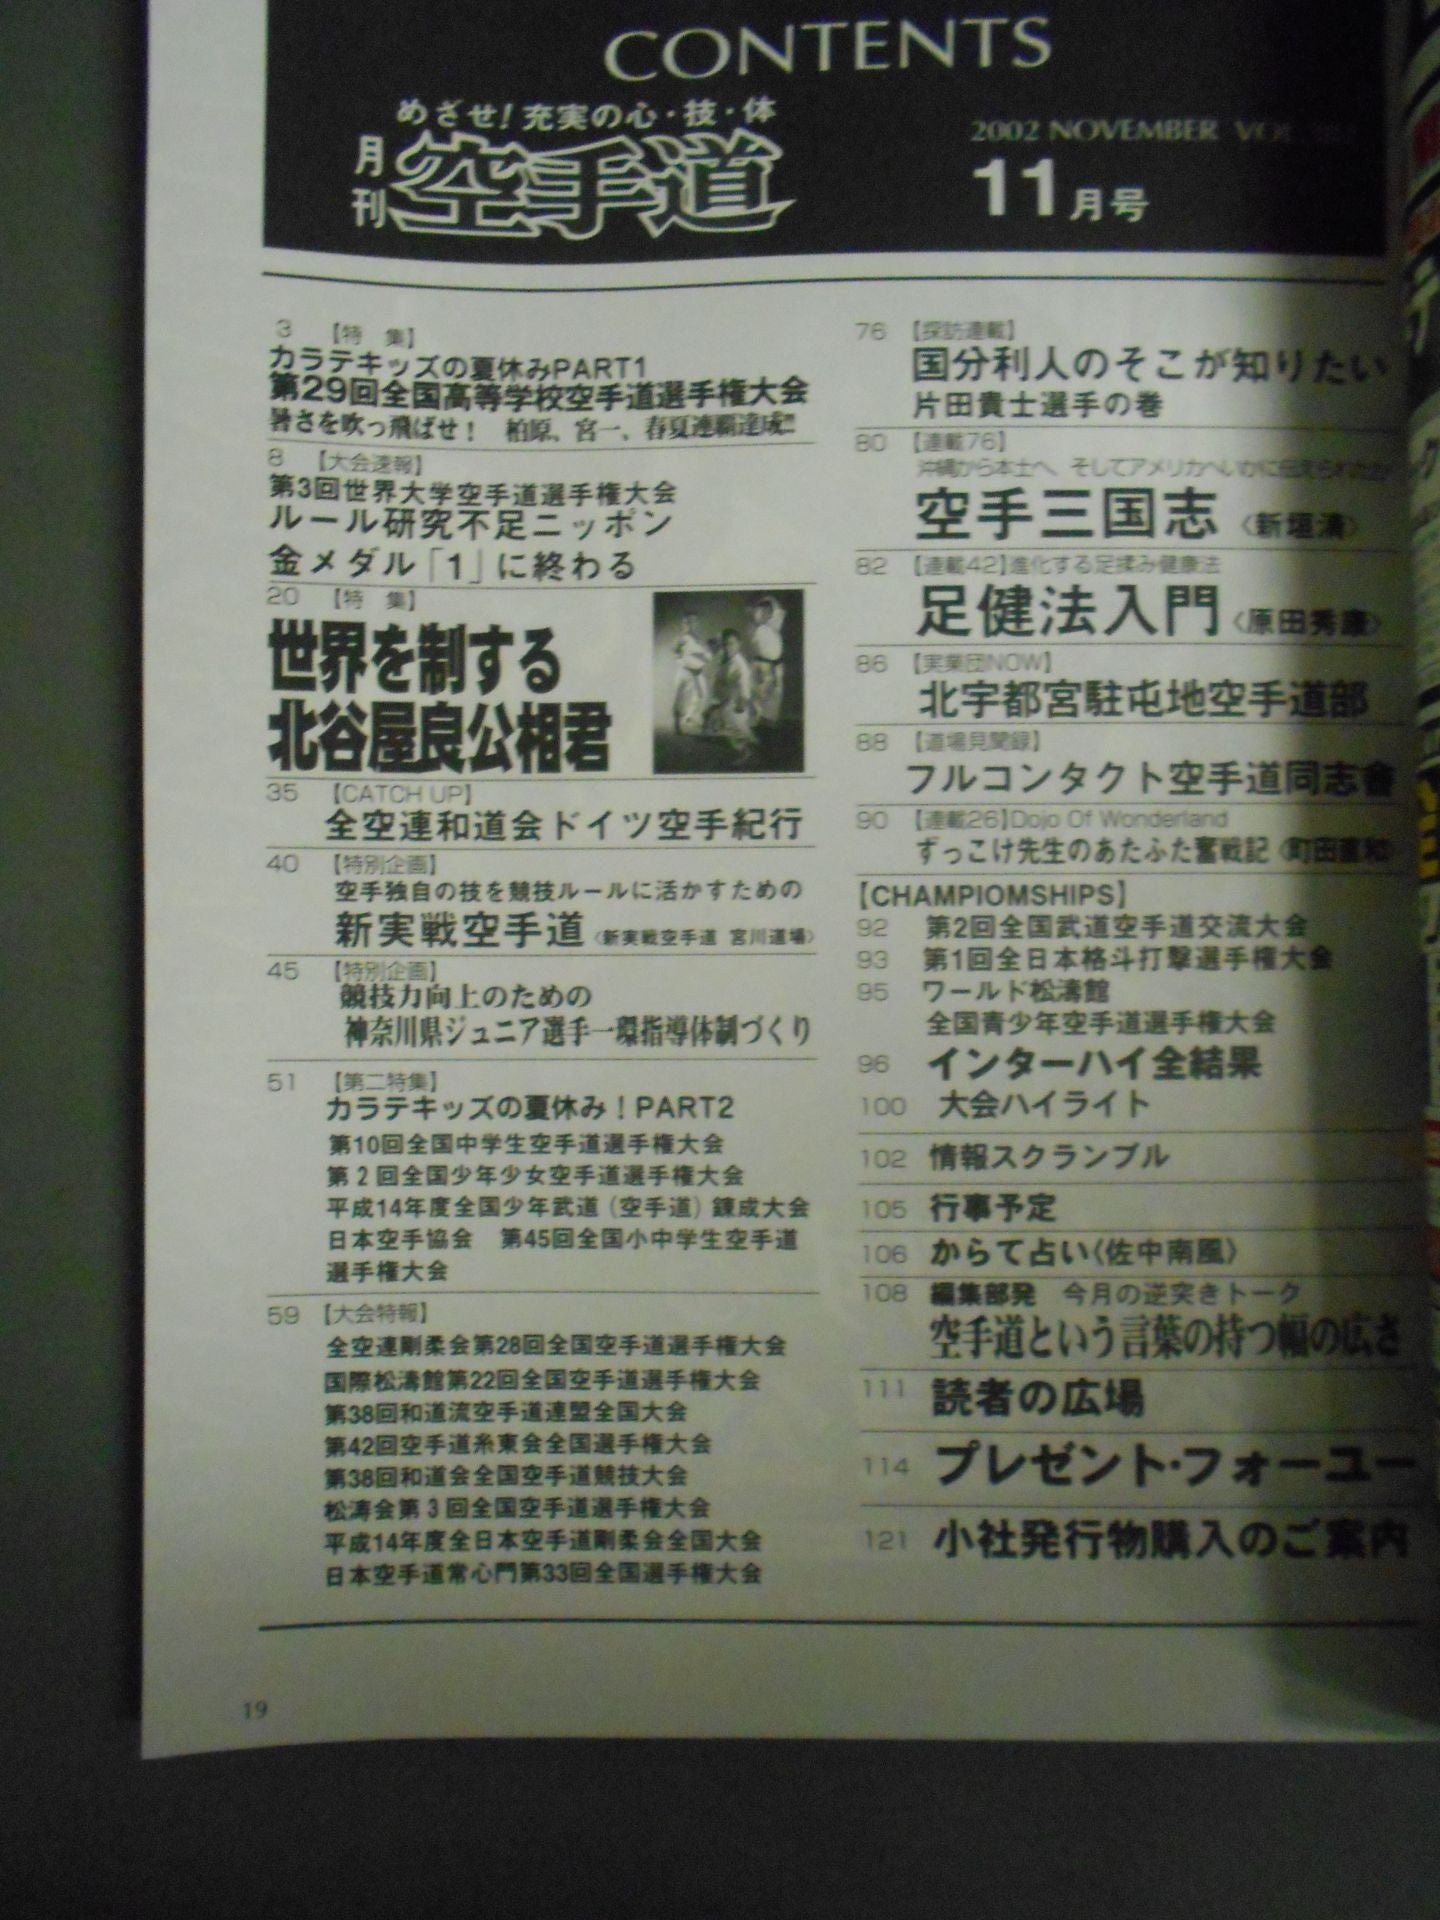 CONTENTS
めざせ!充実の心・技・体
月刊 空手道
2002 NOVEMBER
11月号
3 【特 集】
カラテキッズの夏休みPART1
第29回全国高等学校空手道選手権大会
暑さを吹っ飛ばせ! 柏原、宮一、春夏連覇達成!!
8 【大会速報】
第3回世界大学空手道選手権大会
ルール研究不足ニッポン
金メダル「1」に終わる
20 【特 集】
世界を制する
北谷屋良公相君
35 【CATCH UP】
全空連和道会ドイツ空手紀行
40 【特別企画】
空手独自の技を競技ルールに活かすための
新実戦空手道〈新実戦空手道 宮川道場〉
45 【特別企画】
競技力向上のための
神奈川県ジュニア選手一環指導体制づくり
51 【第二特集】
カラテキッズの夏休み!PART2
第10回全国中学生空手道選手権大会
第2回全国少年少女空手道選手権大会
平成14年度全国少年武道(空手道)錬成大会
日本空手協会 第45回全国小中学生空手道
選手権大会
59 【大会特報】
全空連剛柔会第28回全国空手道選手権大会
国際松濤館第22回全国空手道選手権大会
第38回和道流空手道連盟全国大会
第42回空手道糸東会全国選手権大会
第38回和道会全国空手道競技大会
松涛会第3回全国空手道選手権大会
平成14年度全日本空手道剛柔会全国大会
日本空手道常心門第33回全国選手権大会
76 【探訪連載】
国分利人のそこが知りたい
片田貴士選手の巻
80 【連載76】
沖縄から本土へ そしてアメリカへいかに伝えられたか
空手三国志〈新垣清〉
82 【連載42】進化する足揉み健康法
足健法入門〈原田秀康〉
86 【実業団NOW】
北宇都宮駐屯地空手道部
88 【道場見聞録】
フルコンタクト空手道同志會
90 【連載26】Dojo Of Wonderland
ずっこけ先生のあたふた奮戦記〈町田直和〉
【CHAMPIOMSHIPS】
92 第2回全国武道空手道交流大会
93 第1回全日本格斗打撃選手権大会
95 ワールド松濤館
全国青少年空手道選手権大会
96 インターハイ全結果
100 大会ハイライト
102 情報スクランブル
105 行事予定
106 からて占い〈佐中南風〉
108 編集部発 今月の逆突きトーク
空手道という言葉の持つ幅の広さ
111 読者の広場
114 プレゼント・フォーユー
121 小社発行物購入のご案内
19